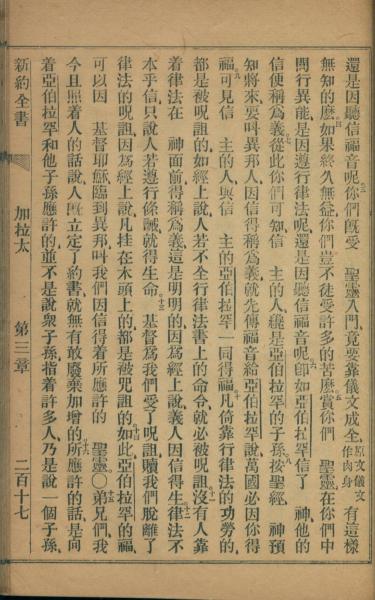 還是因聽信福音呢你們旣受　聖靈入門竟要靠儀文成全原文儀文作肉身有這樣
無知的麽如果終久無益你們豈不徒受許多的苦麽賞你們　聖靈在你們中
間行異能是因遵行律法呢還是因聽信福音呢卽如亞伯拉罕信了　神他的
信便稱爲義從此你們可知信　主的人纔是亞伯拉罕的子孫按聖經　神預
知將來要叫異邦人因信得稱爲義就先傳福音給亞伯拉罕說萬國必因你得
福可見信　主的人與信　主的亞伯拉罕一同得福凡倚靠行律法的功勞的
都是被呪詛的如經上說人若不全行律法書上的命令就必被呪詛沒有人靠
着律法在　神面前得稱爲義這是明明的因爲經上說義人因信得生律法不
本乎信只說人若遵行條誡就得生命　基督爲我們受了呪詛贖我們脫離了
律法的呪詛因爲經上說凡挂在木頭上的都是被咒詛的如此亞伯拉罕的福
可以因　基督耶穌臨到異邦叫我們因信得着所應許的　聖靈○弟兄們我
今且照着人的話說人旣立定了約書就無有敢廢棄加增的所應許的話是向
着亞伯拉罕和他子孫應許的並不是說衆子孫指着許多人乃是說一個子孫
新約全書　加拉太　第三章　二百十七